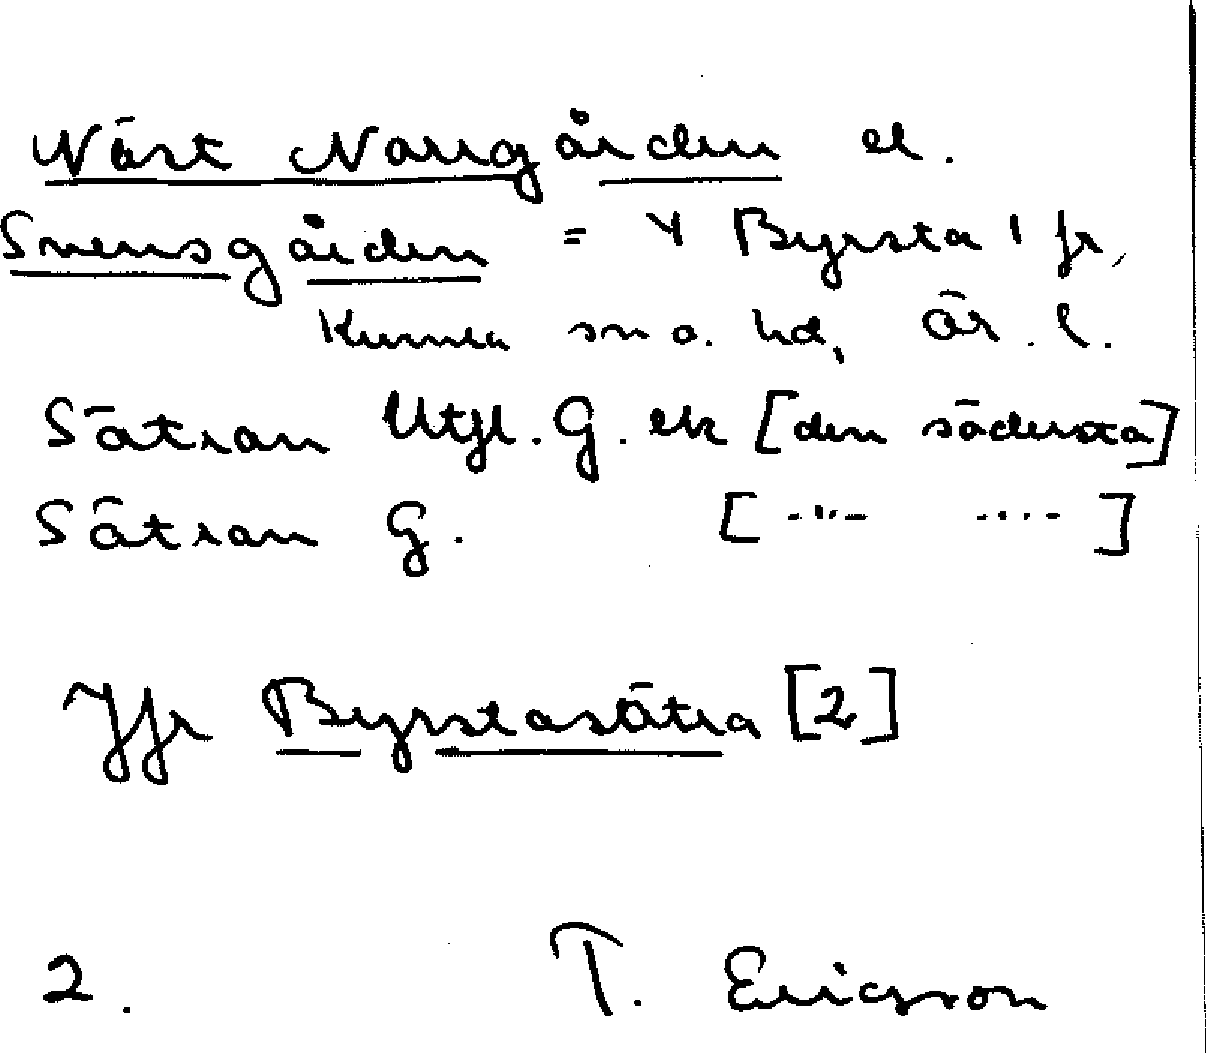 Väst Norrgården el.
Svensgården = 4 Byrsta 1 fr,
Kumla sn o. hd, Ör. l.
Sätran Utjl. G. ek [den södersta]
Sätran G. [ -"- -"- ]
Jfr Byrstasätra [2]
2. T. Ericsson